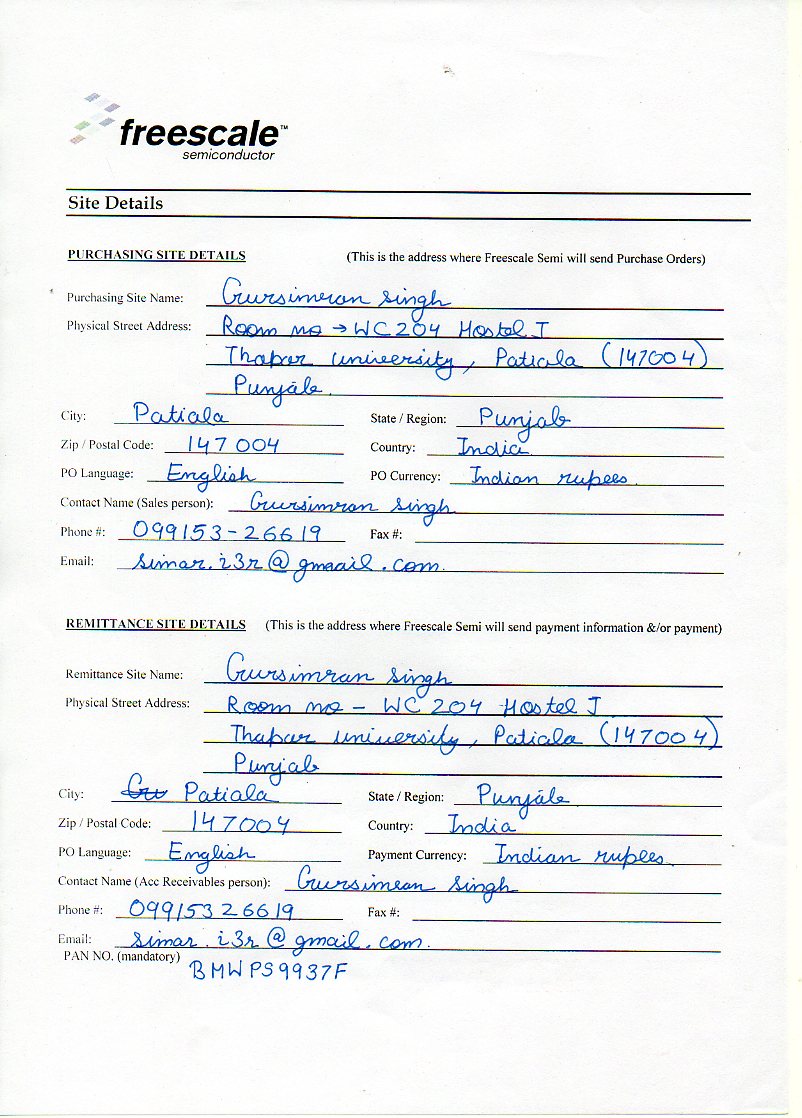 freescale™
semiconductor
Site Details
PURCHASING SITE DETAILS (This is the address where Freescale Semi will send Purchase Orders)
Purchasing Site Name: Gursimran Singh
Physical Street Address: Room no → WC 204 Hostel J
Thapar university, Patiala (147004)
Punjab
City: Patiala State / Region: Punjab
Zip / Postal Code: 147 004 Country: India
PO Language: English PO Currency: Indian rupees
Contact Name (Sales person): Gursimran Singh
Phone #: 099153-26619 Fax #:
Email: simar.i3r@gmaail.com
REMITTANCE SITE DETAILS (This is the address where Freescale Semi will send payment information &/or payment)
Remittance Site Name: Gursimran Singh
Physical Street Address: Room no - WC 204 Hostel J
Thapar university, Patiala (147004)
Punjab
City: Patiala State / Region: Punjab
Zip / Postal Code: 147004 Country: India
PO Language: English Payment Currency: Indian rupees
Contact Name (Acc Receivables person): Gursimran Singh
Phone #: 09915326619 Fax #:
Email: simar.i3r@gmail.com.
PAN NO. (mandatory) BMWPS9937F